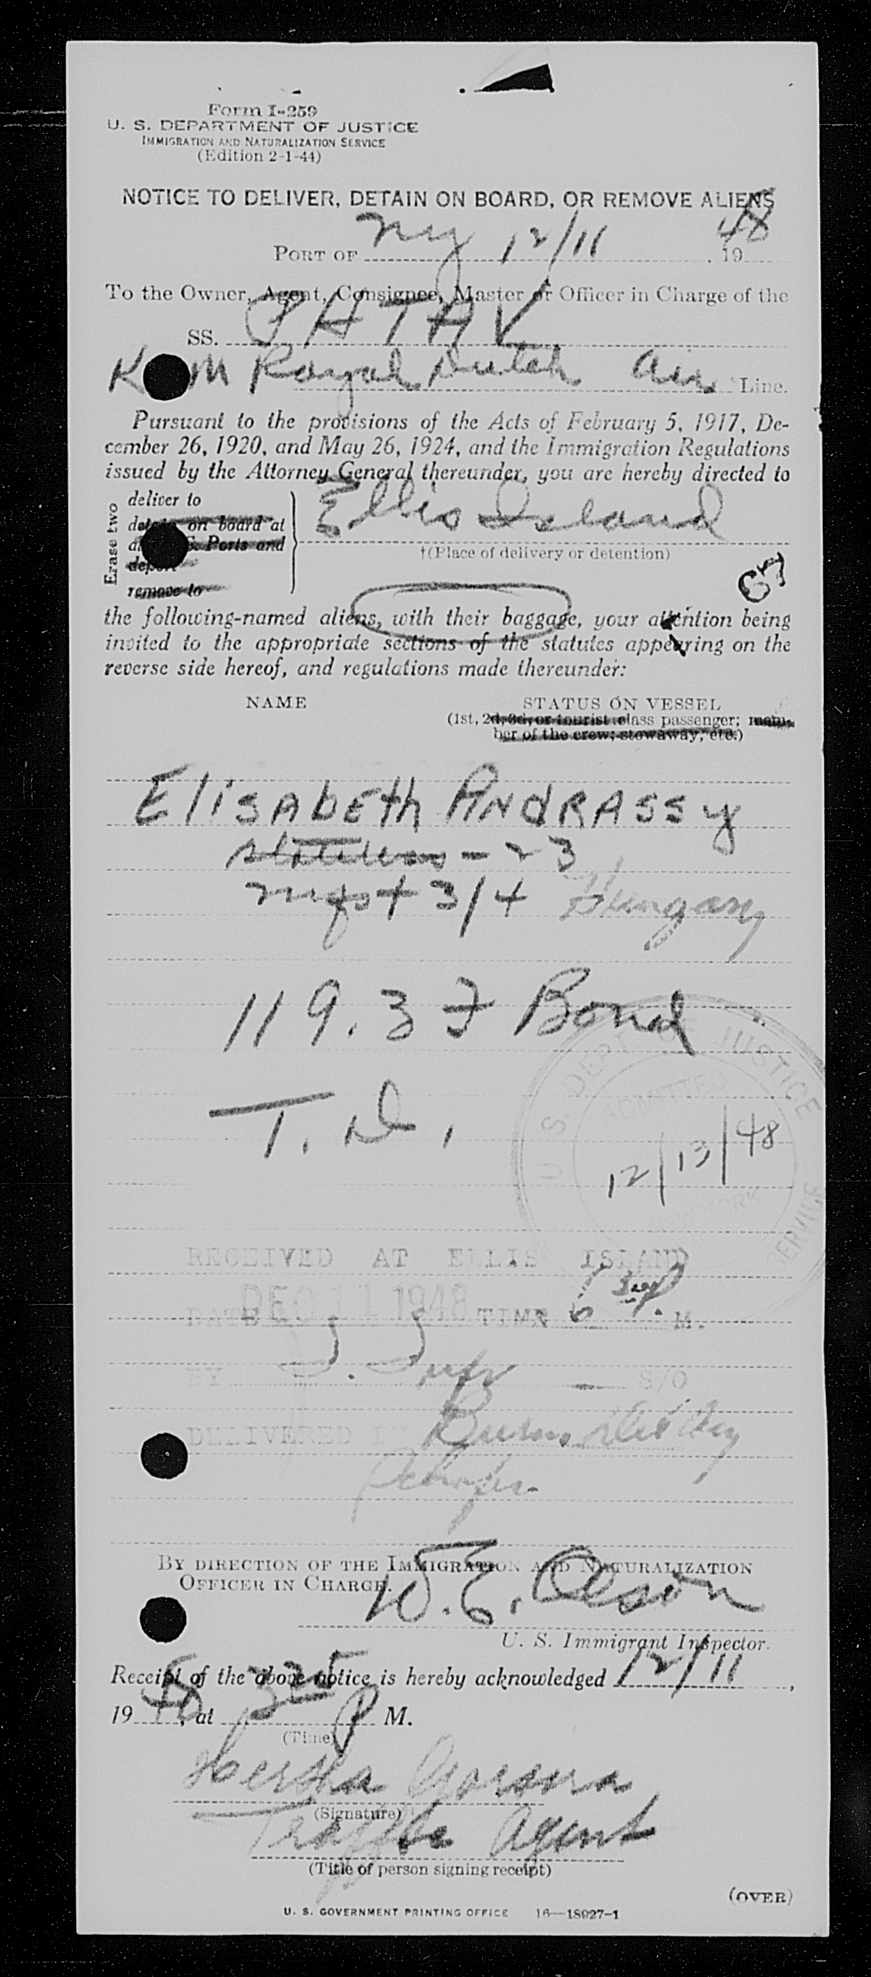 Form I-259
U. S. DEPARTMENT OF JUSTICE
IMMIGRATION AND NATURALIZATION SERVICE
(Edition 2-1-44)
NOTICE TO DELIVER, DETAIN ON BOARD, OR REMOVE ALIENS
PORT OF NY 12/11 1948
To the Owner, Agent, Consignee, Master or Officer in Charge of the
SS. PHTAV
K M Royal Dutch Air Line.
Pursuant to the provisions of the Acts of February 5, 1917, De-
cember 26, 1920, and May 26, 1924, and the Immigration Regulations
issued by the Attorney General thereunder, you are hereby directed to
Erase two
deliver to
detain on board at
Ports and
deport
remove to
Ellis Island
†(Place of delivery or detention)
the following-named aliens, with their baggage, your attention being
invited to the appropriate sections of the statutes appearing on the
reverse side hereof, and regulations made thereunder:
NAME STATUS ON VESSEL
(1st, 2d, 3d, or tourist class passenger; mem-
ber of the crew; stowaway, etc.)
Elisabeth Andrassy
stateless - 23
mfst 3/4 Hungary
119.3 F Bond
T. D.
U. S. DEPT. OF JUSTICE
ADMITTED
12/13/48
SERVICE
RECEIVED AT ELLIS ISLAND
DATE DEC 11 1948 TIME 6 M.
BY S/O
DELIVERED Burns Det Agy
BY DIRECTION OF THE IMMIGRATION AND NATURALIZATION
OFFICER IN CHARGE.
W. E. Olson
U. S. Immigrant Inspector.
Receipt of the above notice is hereby acknowledged 12/11,
1948, at 335 P M.
(Time)
(Signature)
Traffic Agent
(Title of person signing receipt)
(OVER)
U. S. GOVERNMENT PRINTING OFFICE 16—18027-1